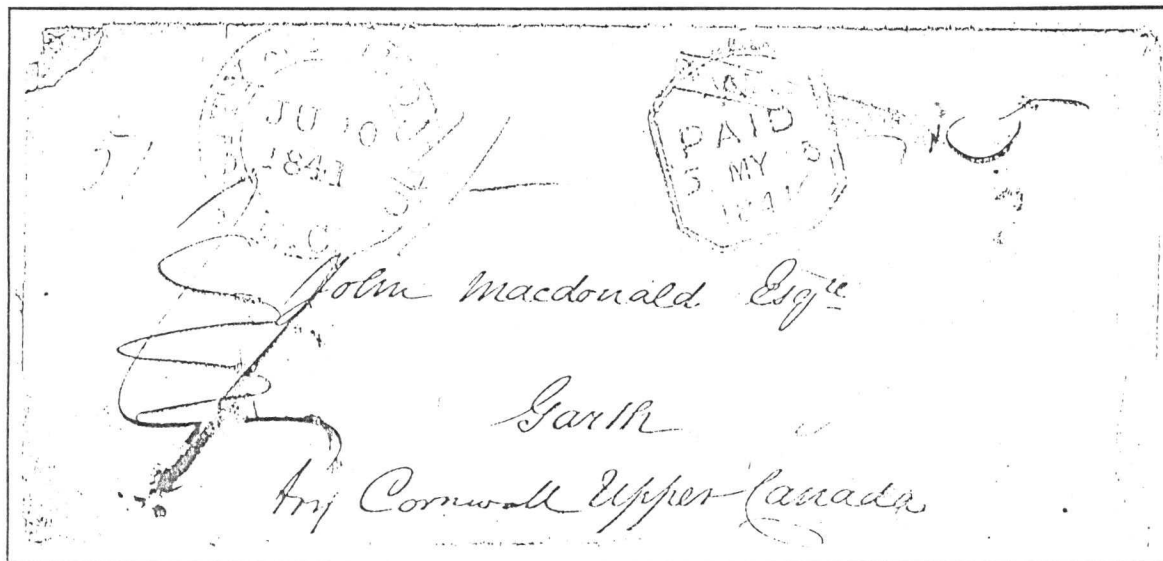 JU 10
1841
L.C.
PAID
5 MY 5
1841
John Macdonald Esqre
Garth
Cornwall Upper Canada